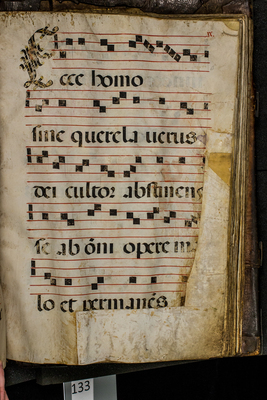 Ecce homo
sine querela uerus
dei cultor abstinens
se ab om̄i opere m
lo et permanēs
133